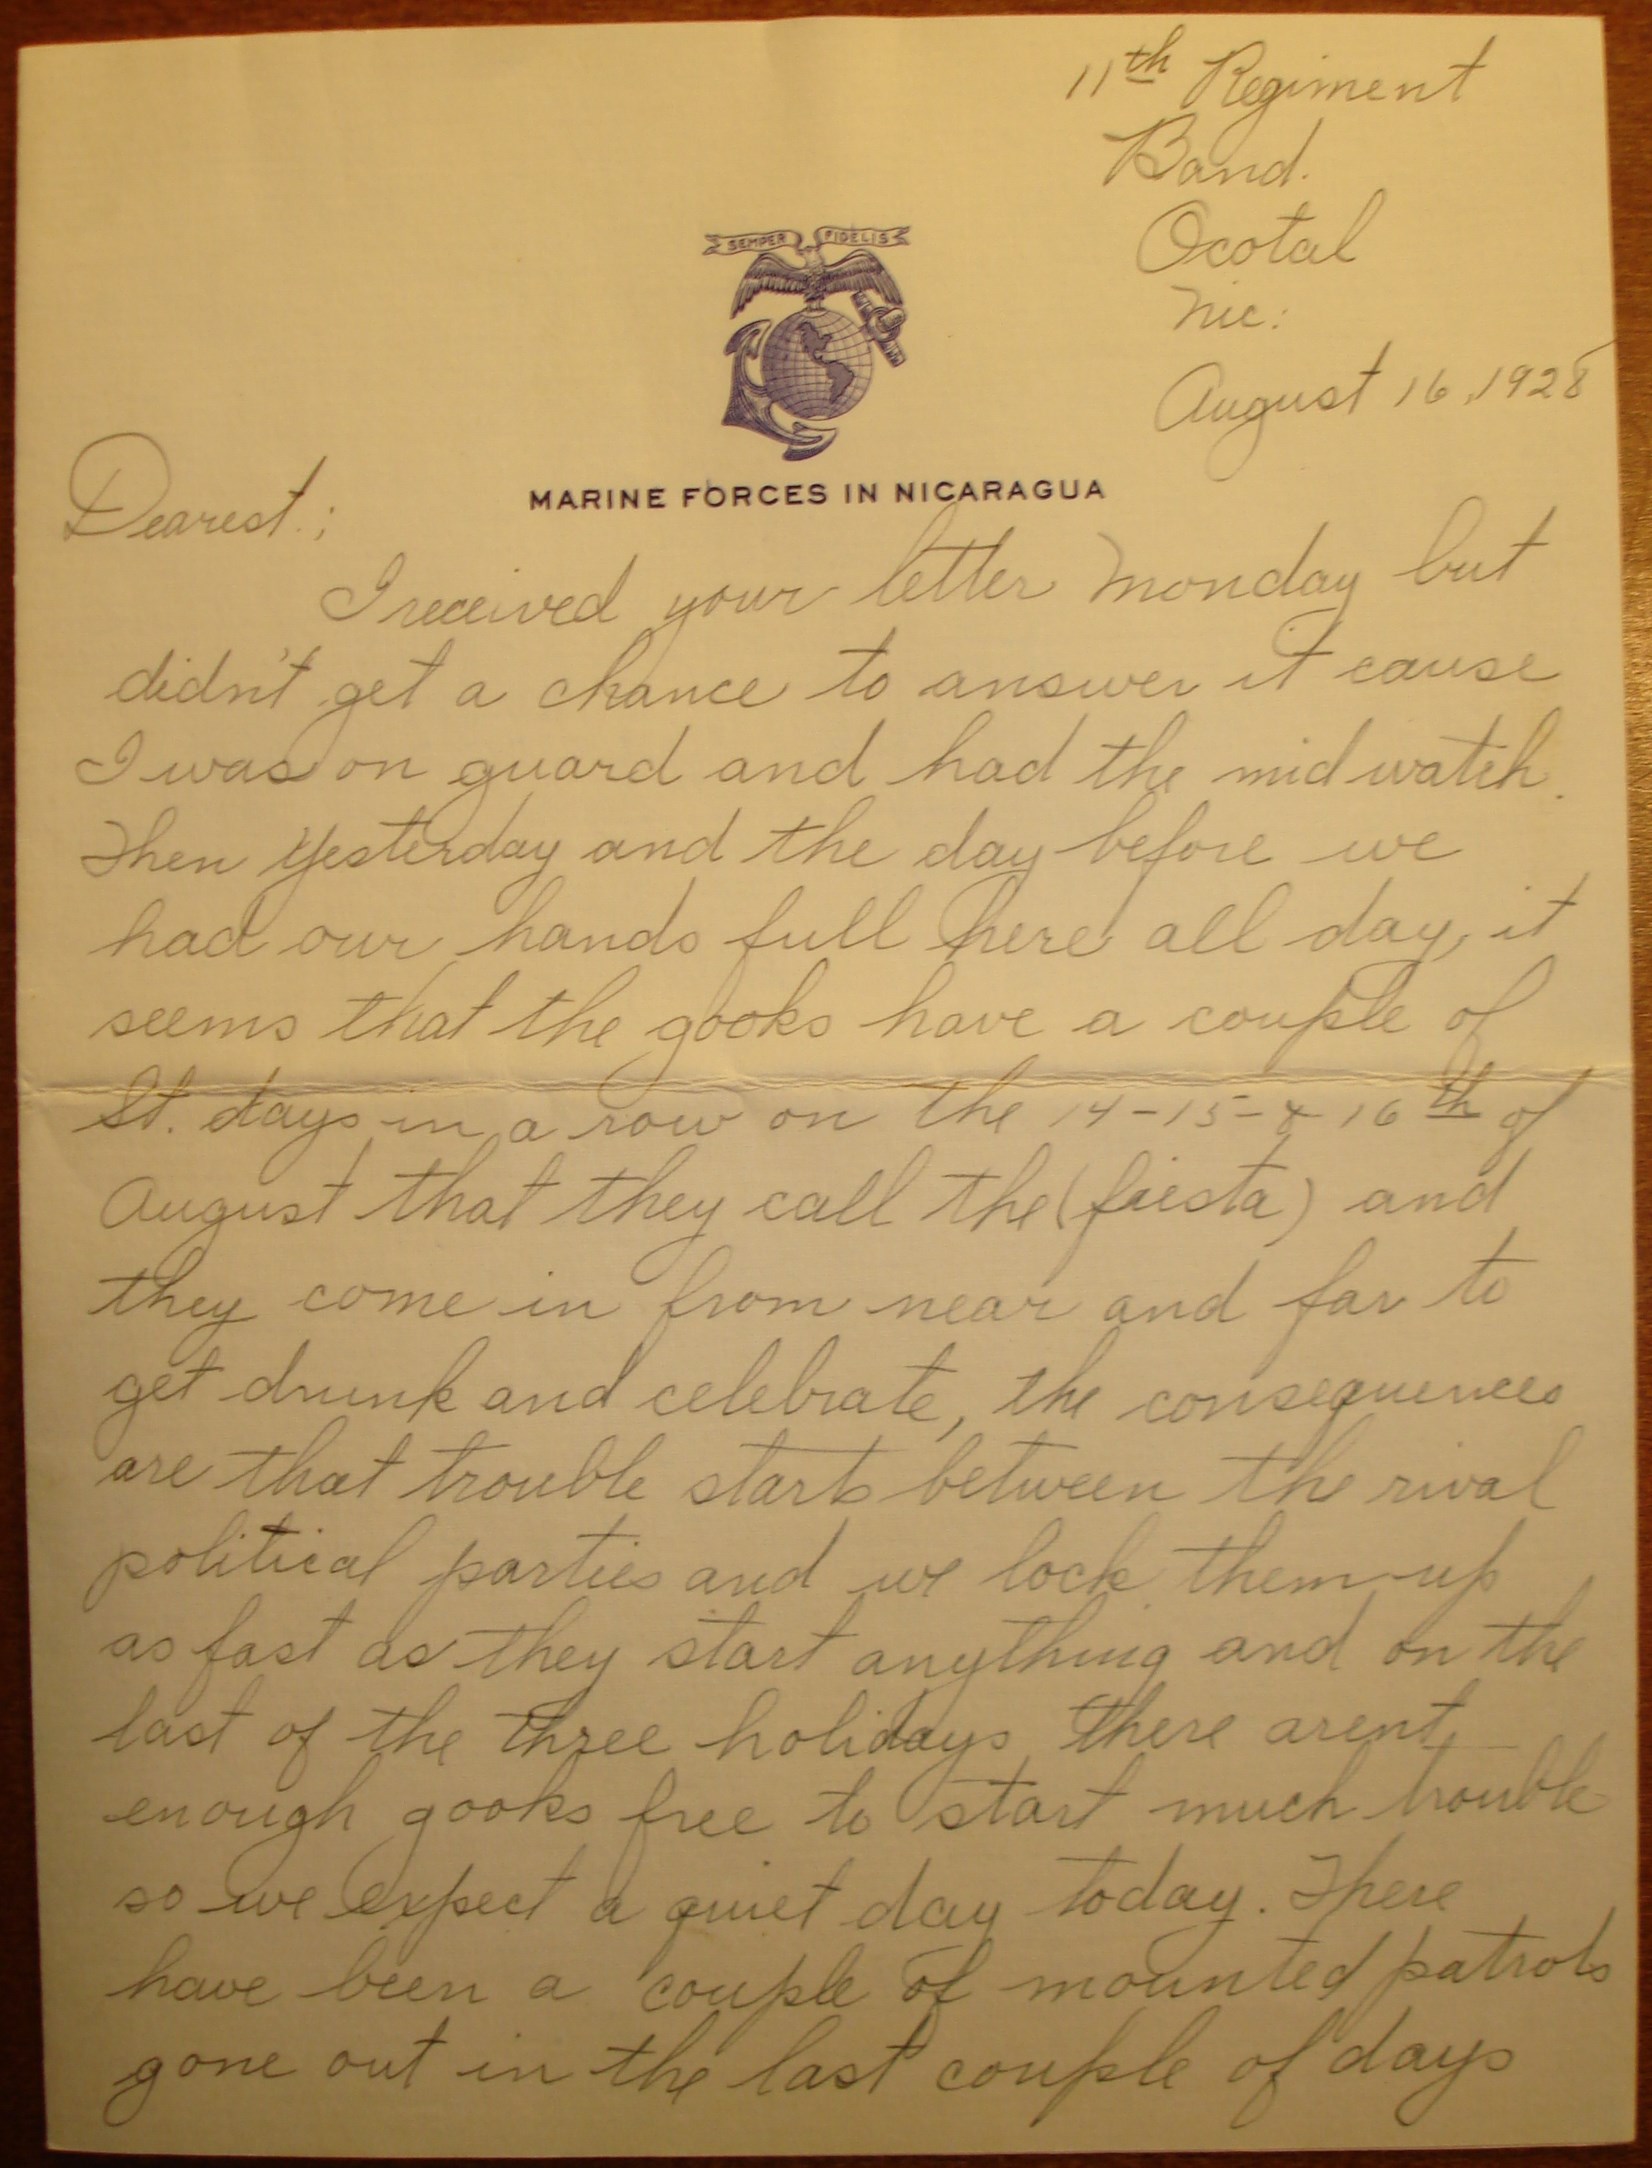 11th Regiment
Band.
Ocotal
Nic:
August 16, 1928
SEMPER FIDELIS
MARINE FORCES IN NICARAGUA
Dearest.;
I received your letter Monday but
didn't get a chance to answer it cause
I was on guard and had the mid watch.
Then Yesterday and the day before we
had our hands full here all day, it
seems that the gooks have a couple of
St. days in a row on the 14-15-& 16th of
August that they call the (fiesta) and
they come in from near and far to
get drunk and celebrate, the consequences
are that trouble starts between the rival
political parties and we lock them up
as fast as they start anything and on the
last of the three holidays there arent
enough gooks free to start much trouble
so we expect a quiet day today. There
have been a couple of mounted patrols
gone out in the last couple of days